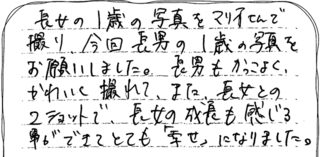 長女の1歳の写真をマリイさんで
撮り、今回長男の1歳の写真を
お願いしました。長男もかっこよく、
かわいく撮れて、また、長女との
2ショットで、長女の成長も感じる
事ができてとても「幸せ」になりました。